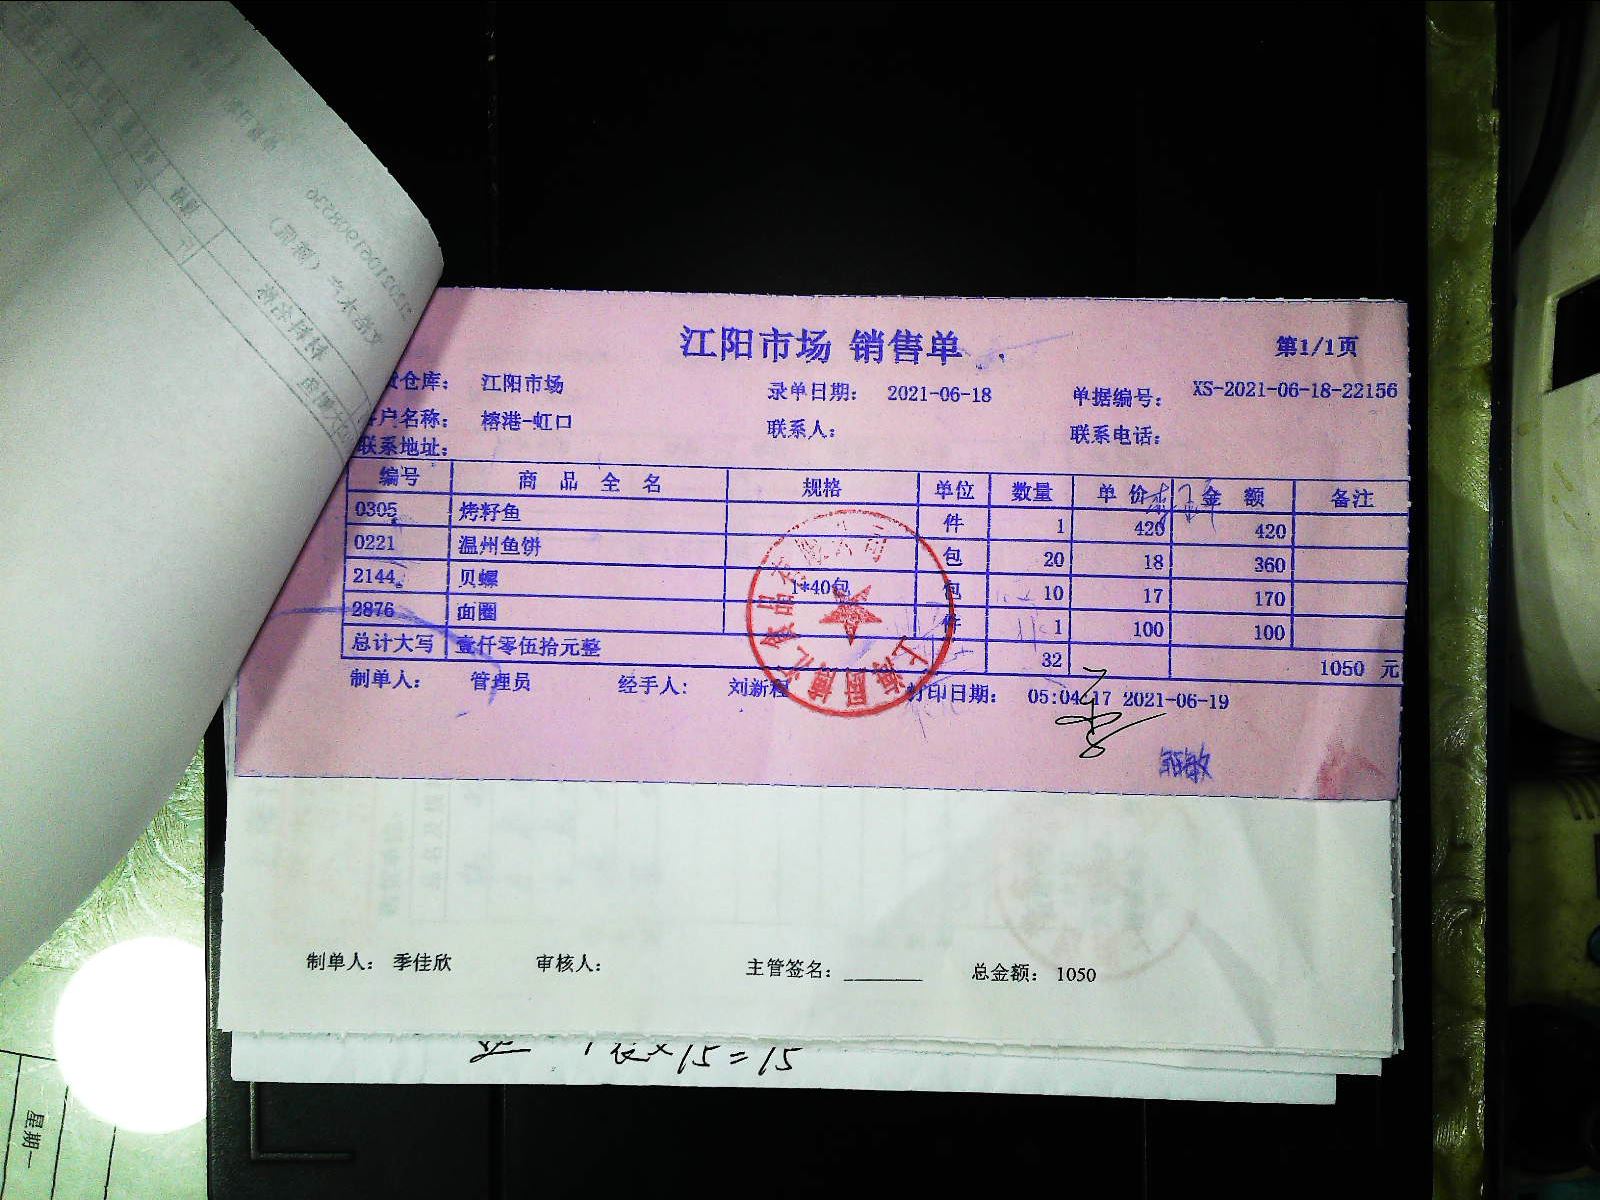 江阳市场 销售单
第1/1页
仓库: 江阳市场 录单日期: 2021-06-18 单据编号: XS-2021-06-18-22156
客户名称: 榕港-虹口 联系人: 联系电话:
联系地址:
编号 商品全名 规格 单位 数量 单价 金额 备注
0305 烤籽鱼 件 1 420 420
0221 温州鱼饼 包 20 18 360
2144 贝螺 1*40包 包 10 17 170
2876 面圈 件 1 100 100
总计大写 壹仟零伍拾元整 32 1050 元
制单人: 管理员 经手人: 刘新程 打印日期: 05:04:17 2021-06-19
制单人: 季佳欣 审核人: 主管签名: 总金额: 1050
1袋×15=15
星期一